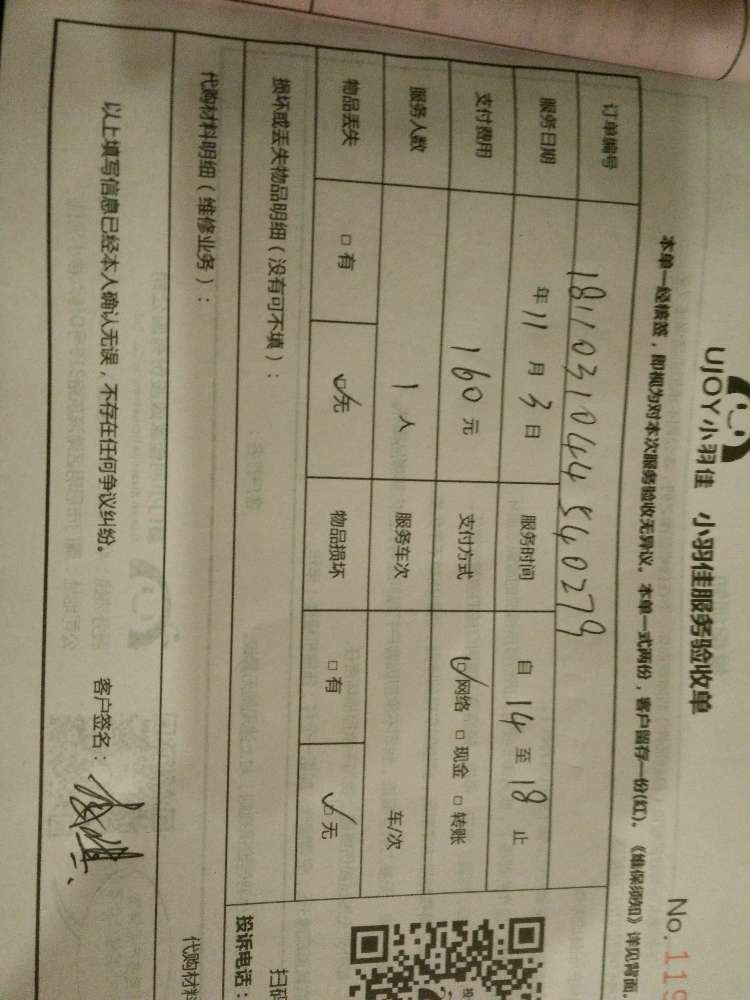 UJOY小羽佳 小羽佳服务验收单
No. 119
本单一经核签，即视为对本次服务验收无异议。本单一式两份，客户留存一份(红)。《维保须知》详见背面
订单编号 181103104454 0279
服务日期 年 11 月 3 日 服务时间 自 14 至 18 止
支付费用 160 元 支付方式 ☑网络 □现金 □转账
服务人数 1 人 服务车次 车/次
物品丢失 □有 ☑无 物品损坏 □有 ☑无
损坏或丢失物品明细（没有可不填）：
代购材料明细（维修业务）：
代购材料
扫码
投诉电话：
以上填写信息已经本人确认无误，不存在任何争议纠纷。 客户签名：